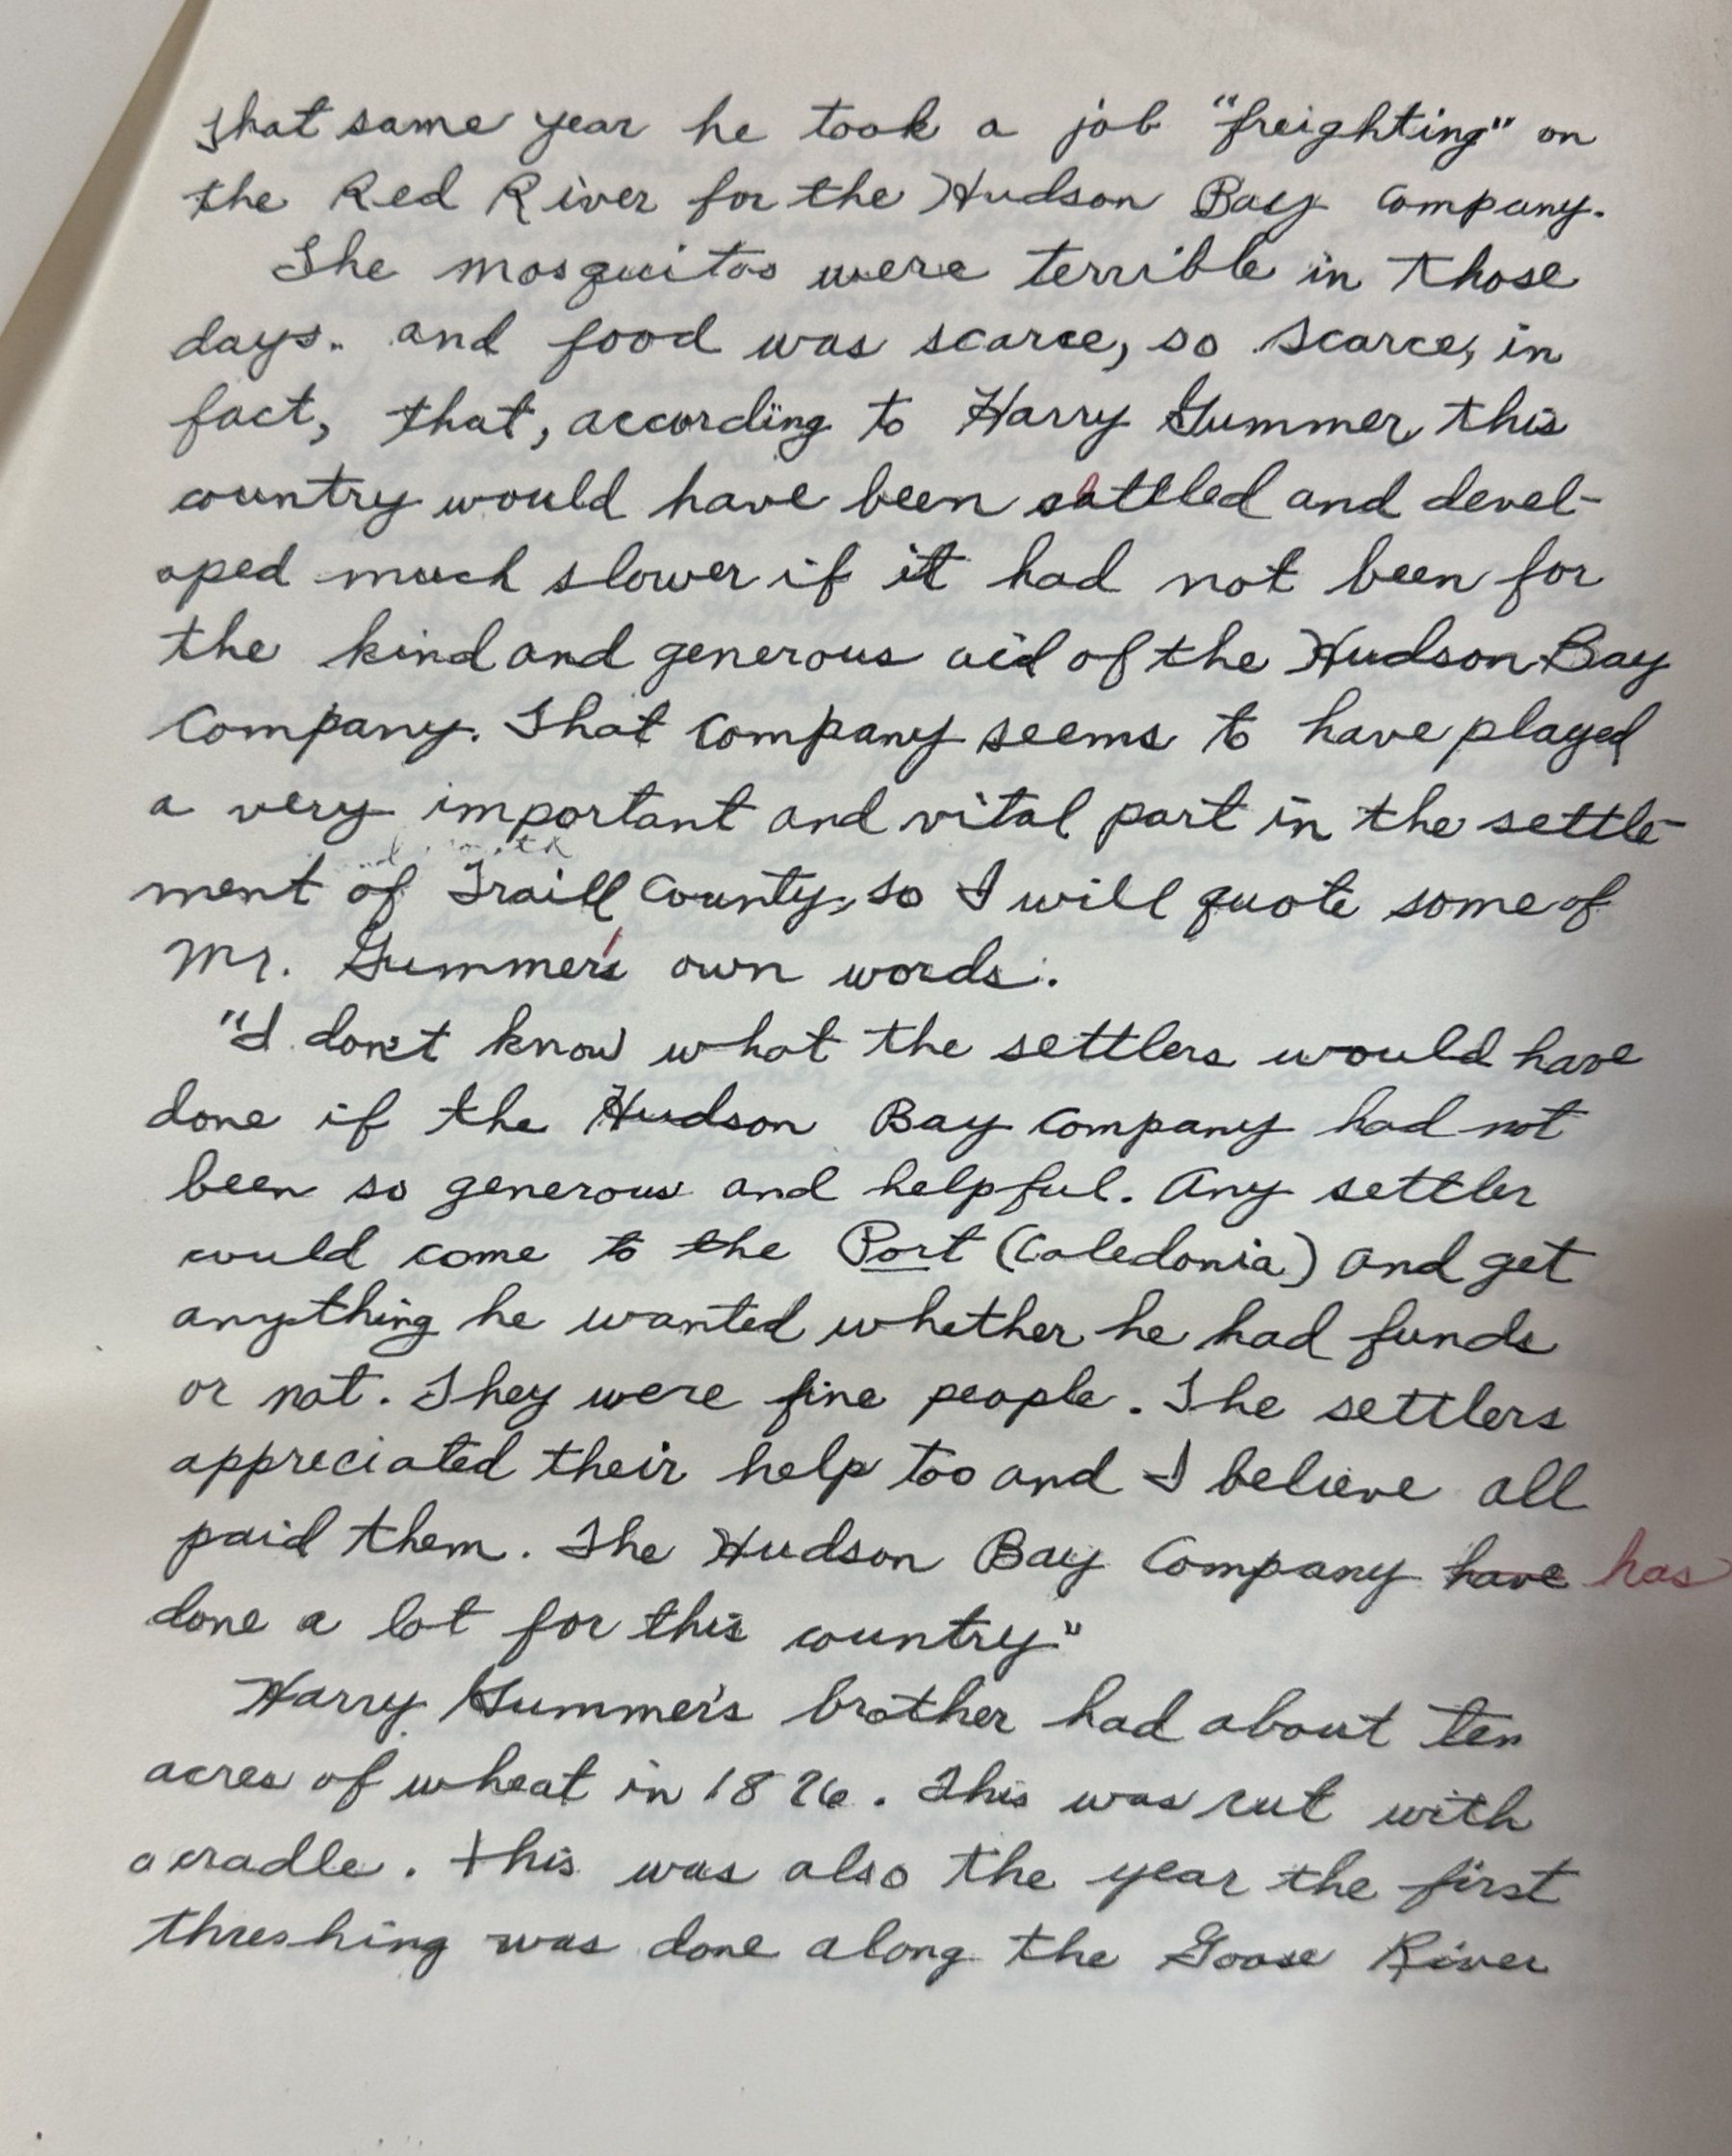 That same year he took a job "freighting" on
the Red River for the Hudson Bay Company.
The mosquitos were terrible in those
days. and food was scarce, so scarce, in
fact, that, according to Harry Gummer this
country would have been settled and devel-
oped much slower if it had not been for
the kind and generous aid of the Hudson Bay
Company. That Company seems to have played
a very important and vital part in the settle-
ment of Traill County, so I will quote some of
Mr. Gummer's own words:
"I don't know what the settlers would have
done if the Hudson Bay Company had not
been so generous and helpful. Any settler
could come to the Port (Caledonia) and get
anything he wanted whether he had funds
or not. They were fine people. The settlers
appreciated their help too and I believe all
paid them. The Hudson Bay Company have has
done a lot for this country"
Harry Gummer's brother had about ten
acres of wheat in 1876. This was cut with
a cradle. This was also the year the first
threshing was done along the Goose River